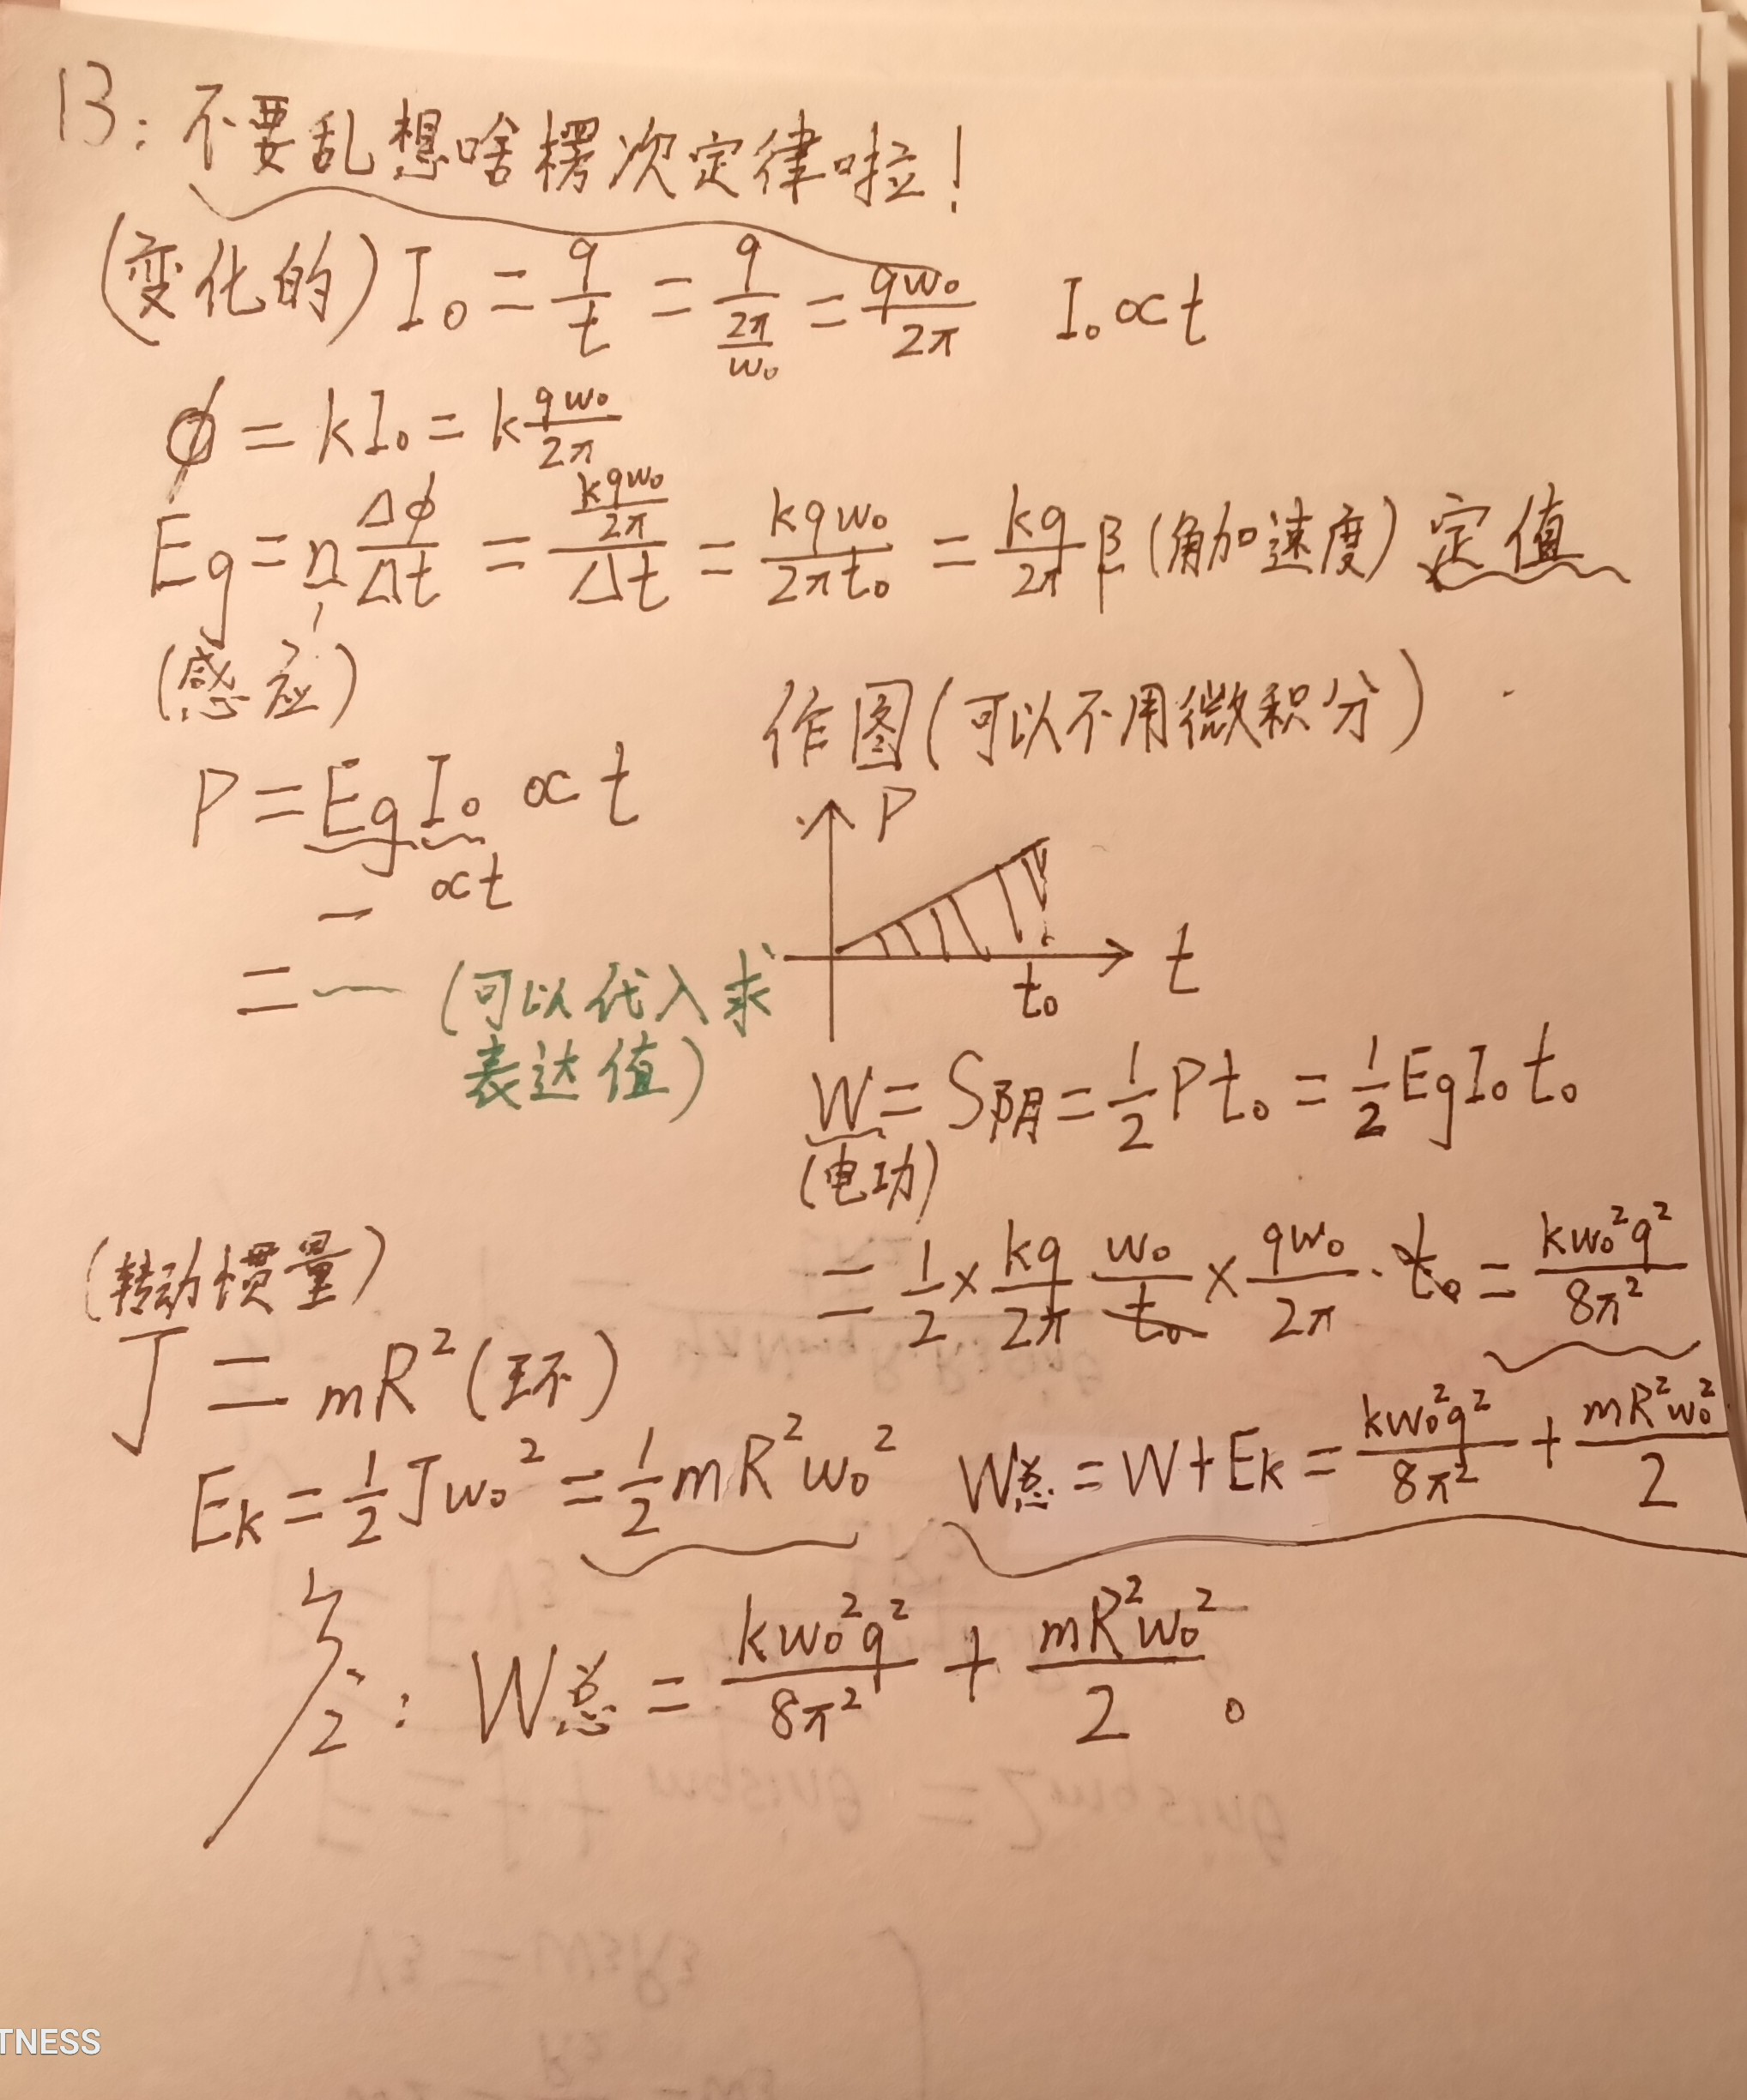 13：不要乱想啥楞次定律啦！
(变化的) I₀ = q/t = q/(2π/w₀) = qw₀/2π I₀∝t
ϕ = kI₀ = k qw₀/2π
Eg = n Δϕ/Δt = (kqw₀/2π)/Δt = kqw₀/2πt₀ = kq/2π β (角加速度) 定值
(感应)
作图(可以不用微积分)
P = EgI₀ ∝ t
∝t
= (可以代入求
表达值)
P
t₀
t
W = S阴 = 1/2 Pt₀ = 1/2 EgI₀t₀
(电功)
= 1/2 × kq/2π w₀/t₀ × qw₀/2π · t₀ = kw₀²q²/8π²
(转动惯量)
J = mR² (环)
Ek = 1/2 Jw₀² = 1/2 mR²w₀²
W总 = W + Ek = kw₀²q²/8π² + mR²w₀²/2
: W总 = kw₀²q²/8π² + mR²w₀²/2 。
TNESS